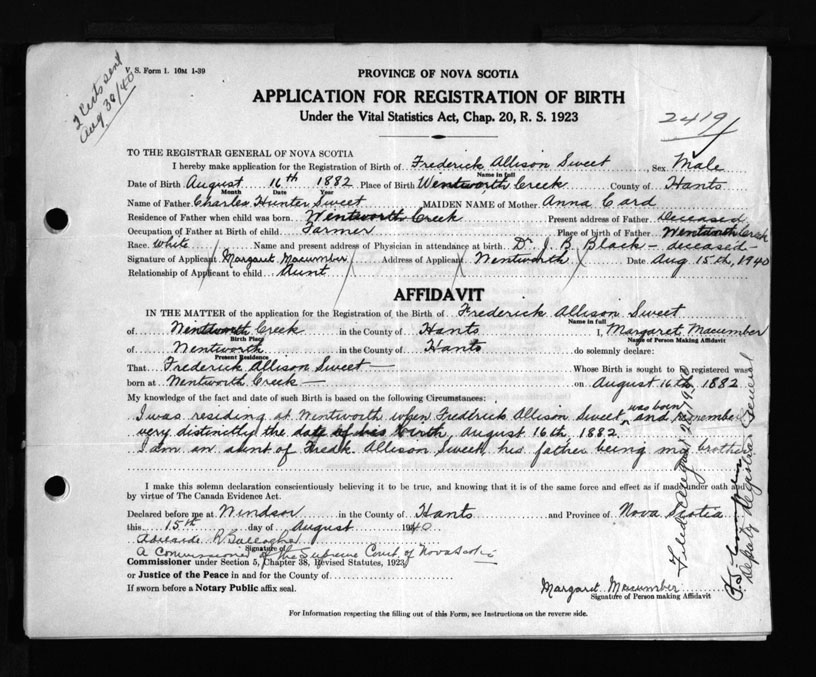 2 Certs sent
Aug 30/40
V. S. Form 1. 10M 1-39
PROVINCE OF NOVA SCOTIA
APPLICATION FOR REGISTRATION OF BIRTH
Under the Vital Statistics Act, Chap. 20, R. S. 1923
2419
TO THE REGISTRAR GENERAL OF NOVA SCOTIA
I hereby make application for the Registration of Birth of Frederick Allison Sweet Sex Male
Name in full
Date of Birth August 16th 1882 Place of Birth Wentworth Creek County of Hants
Month Date Year
Name of Father Charles Hunter Sweet MAIDEN NAME of Mother Anna Card
Residence of Father when child was born Wentworth Creek Present address of Father deceased
Occupation of Father at Birth of child Farmer Place of birth of Father Wentworth Creek
Race White Name and present address of Physician in attendance at birth Dr J. B. Black - deceased -
Signature of Applicant Margaret Macumber Address of Applicant Wentworth Date Aug 15th, 1940
Relationship of Applicant to child Aunt
AFFIDAVIT
IN THE MATTER of the application for the Registration of the Birth of Frederick Allison Sweet
Name in full
of Wentworth Creek in the County of Hants I, Margaret Macumber
Birth Place Name of Person Making Affidavit
of Wentworth in the County of Hants do solemnly declare:
Present Residence
That Frederick Allison Sweet Whose Birth is sought to be registered was
born at Wentworth Creek on August 16th 1882
My knowledge of the fact and date of such Birth is based on the following Circumstances:
I was residing at Wentworth when Frederick Allison Sweet was born and remember
very distinctly the date of his birth, August 16th, 1882.
I am an aunt of Fredk Allison Sweet, his father being my brother
I make this solemn declaration conscientiously believing it to be true, and knowing that it is of the same force and effect as if made under oath and
by virtue of The Canada Evidence Act.
Declared before me at Windsor in the County of Hants and Province of Nova Scotia
this 15th day of August 1940
Adelaide R Gallagher
Signature of
A Commissioner of the Supreme Court of Nova Scotia
Commissioner under Section 5, Chapter 38, Revised Statutes, 1923
or Justice of the Peace in and for the County of
If sworn before a Notary Public affix seal.
Margaret Macumber
Signature of Person making Affidavit
For Information respecting the filling out of this Form, see Instructions on the reverse side.
Filed August 1940
Deputy Registrar General